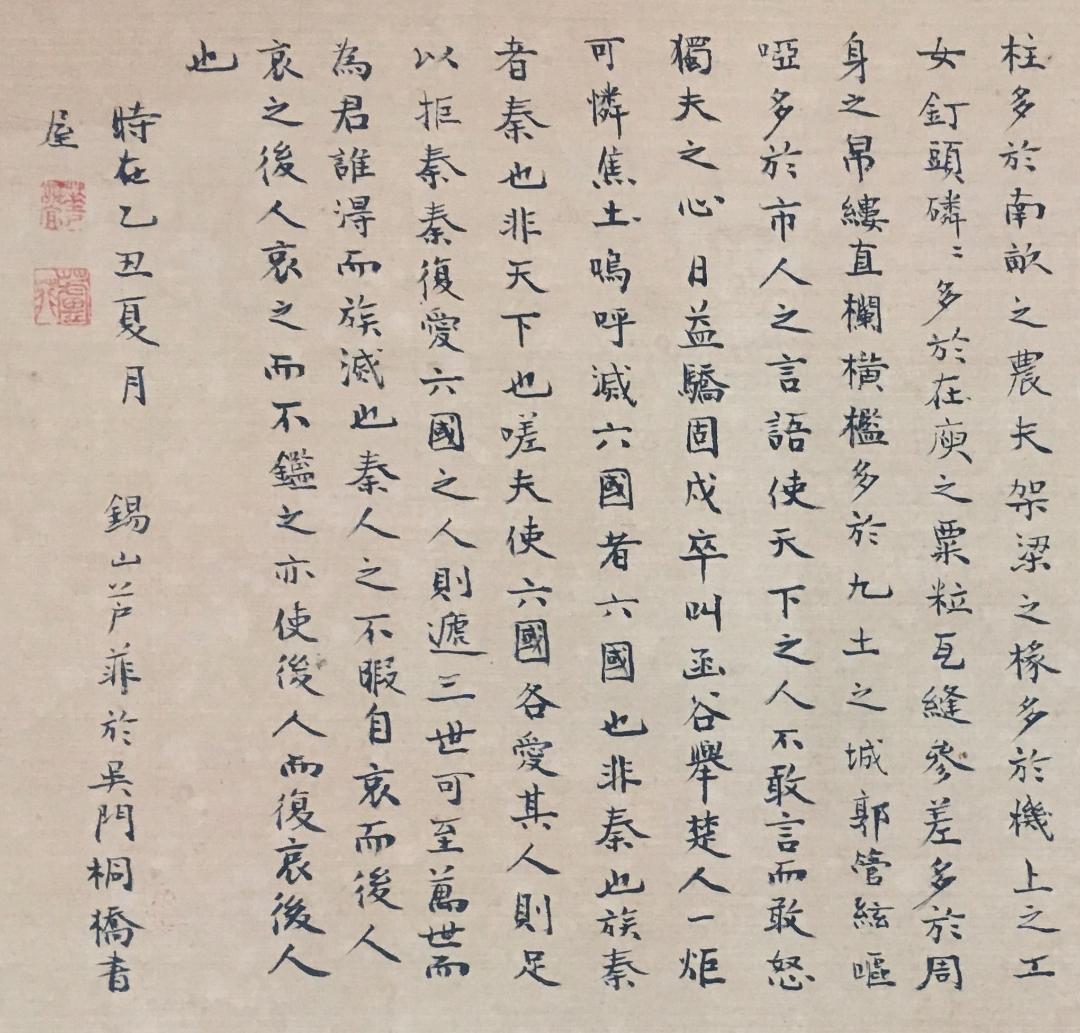 柱多於南畝之農夫架梁之椽多於機上之工
女釘頭磷〻多於在庾之粟粒瓦縫參差多於周
身之帛縷直欄橫檻多於九土之城郭管絃嘔
啞多於市人之言語使天下之人不敢言而敢怒
獨夫之心日益驕固戍卒叫函谷舉楚人一炬
可憐焦土嗚呼滅六國者六國也非秦也族秦
者秦也非天下也嗟夫使六國各愛其人則足
以拒秦秦復愛六國之人則遞三世可至萬世而
為君誰得而族滅也秦人之不暇自哀而後人
哀之後人哀之而不鑑之亦使後人而復哀後人
也
時在乙丑夏月 錫山芦菲於吳門桐橋書
屋